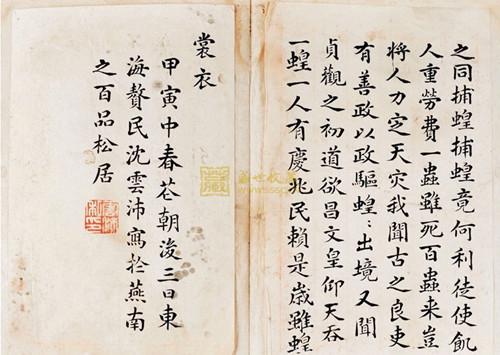 之同捕蝗捕蝗竟何利徒使飢
人重勞費一蟲雖死百蟲来豈
將人力定天灾我聞古之良吏
有善政以政驅蝗:出境又聞
貞觀之初道欲昌文皇仰天吞
一蝗一人有慶兆民賴是嵗雖蝗
裳衣
甲寅中春芲朝後三日東
海贅民沈雲沛寫於燕南
之百品松居
藏
盛世收藏